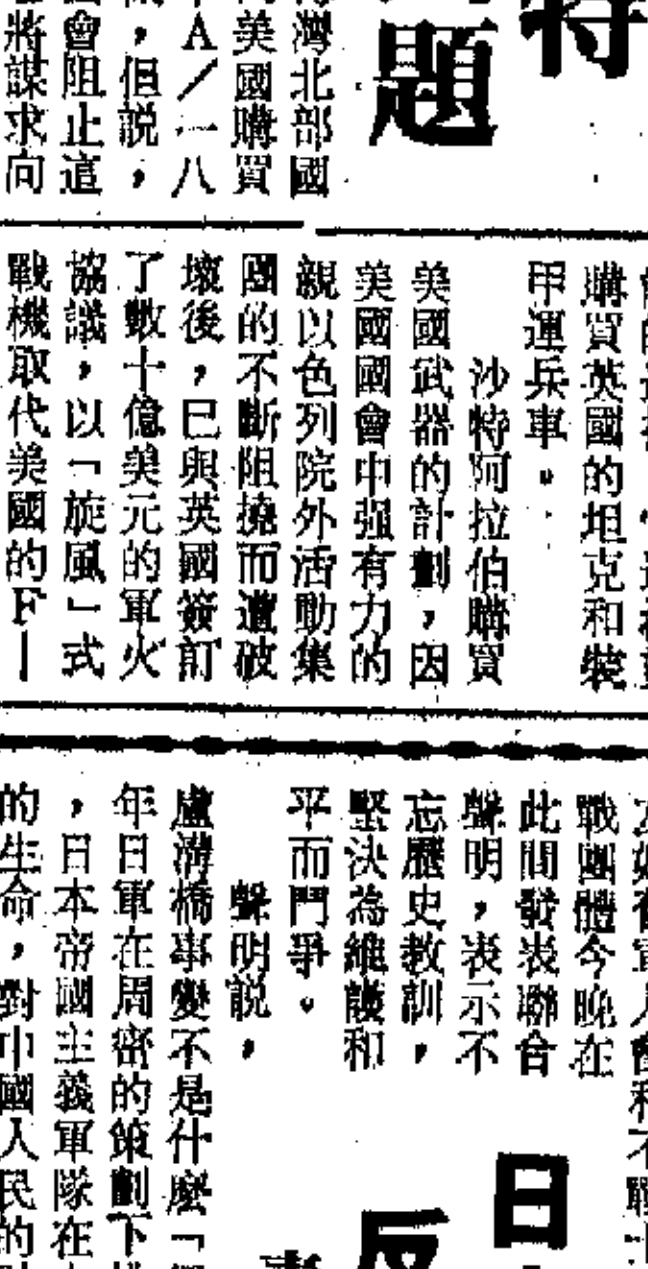 特
題
灣北部國
美國購買
A／一八
，但說，
會阻止這
將謀求向
購買英國的坦克和裝
甲運兵車。
沙特阿拉伯購買
美國武器的計劃，因
美國國會中强有力的
親以色列院外活動集
團的不斷阻撓而遭破
壞後，已與英國簽訂
了數十億美元的軍火
協議，以「旋風」式
戰機取代美國的F—
戰團體今晚在
此間發表聯合
聲明，表示不
忘歷史教訓，
堅決為維護和
平而鬥爭。
聲明說，
盧溝橋事變不是什麼「
年日軍在周密的策劃下
，日本帝國主義軍隊在
的生命，對中國人民的
日
反